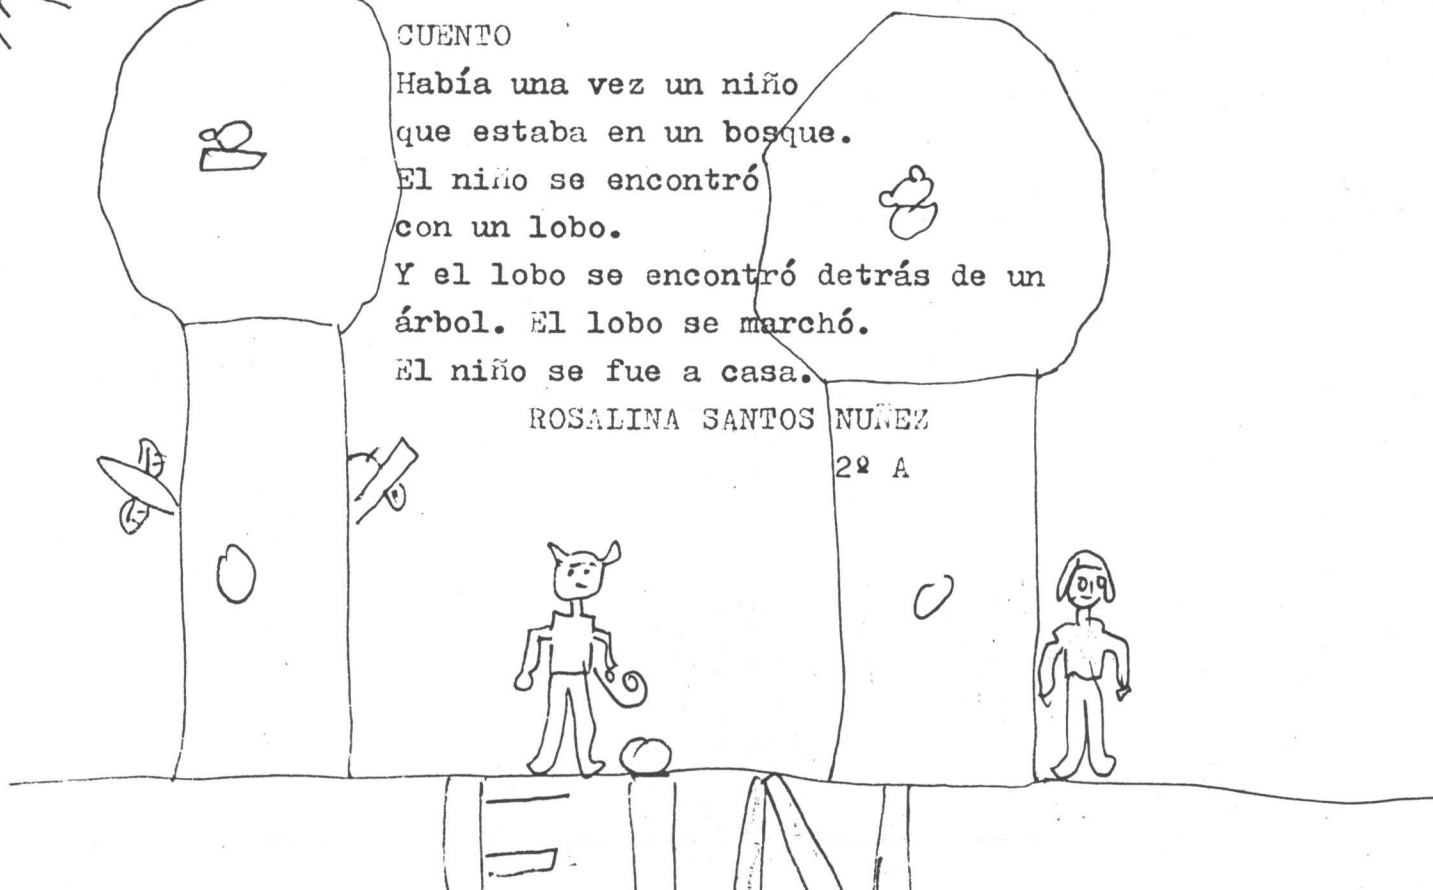 CUENTO
Había una vez un niño
que estaba en un bosque.
El niño se encontró
con un lobo.
Y el lobo se encontró detrás de un
árbol. El lobo se marchó.
El niño se fue a casa.
ROSALINA SANTOS NUÑEZ
2º A
FIN